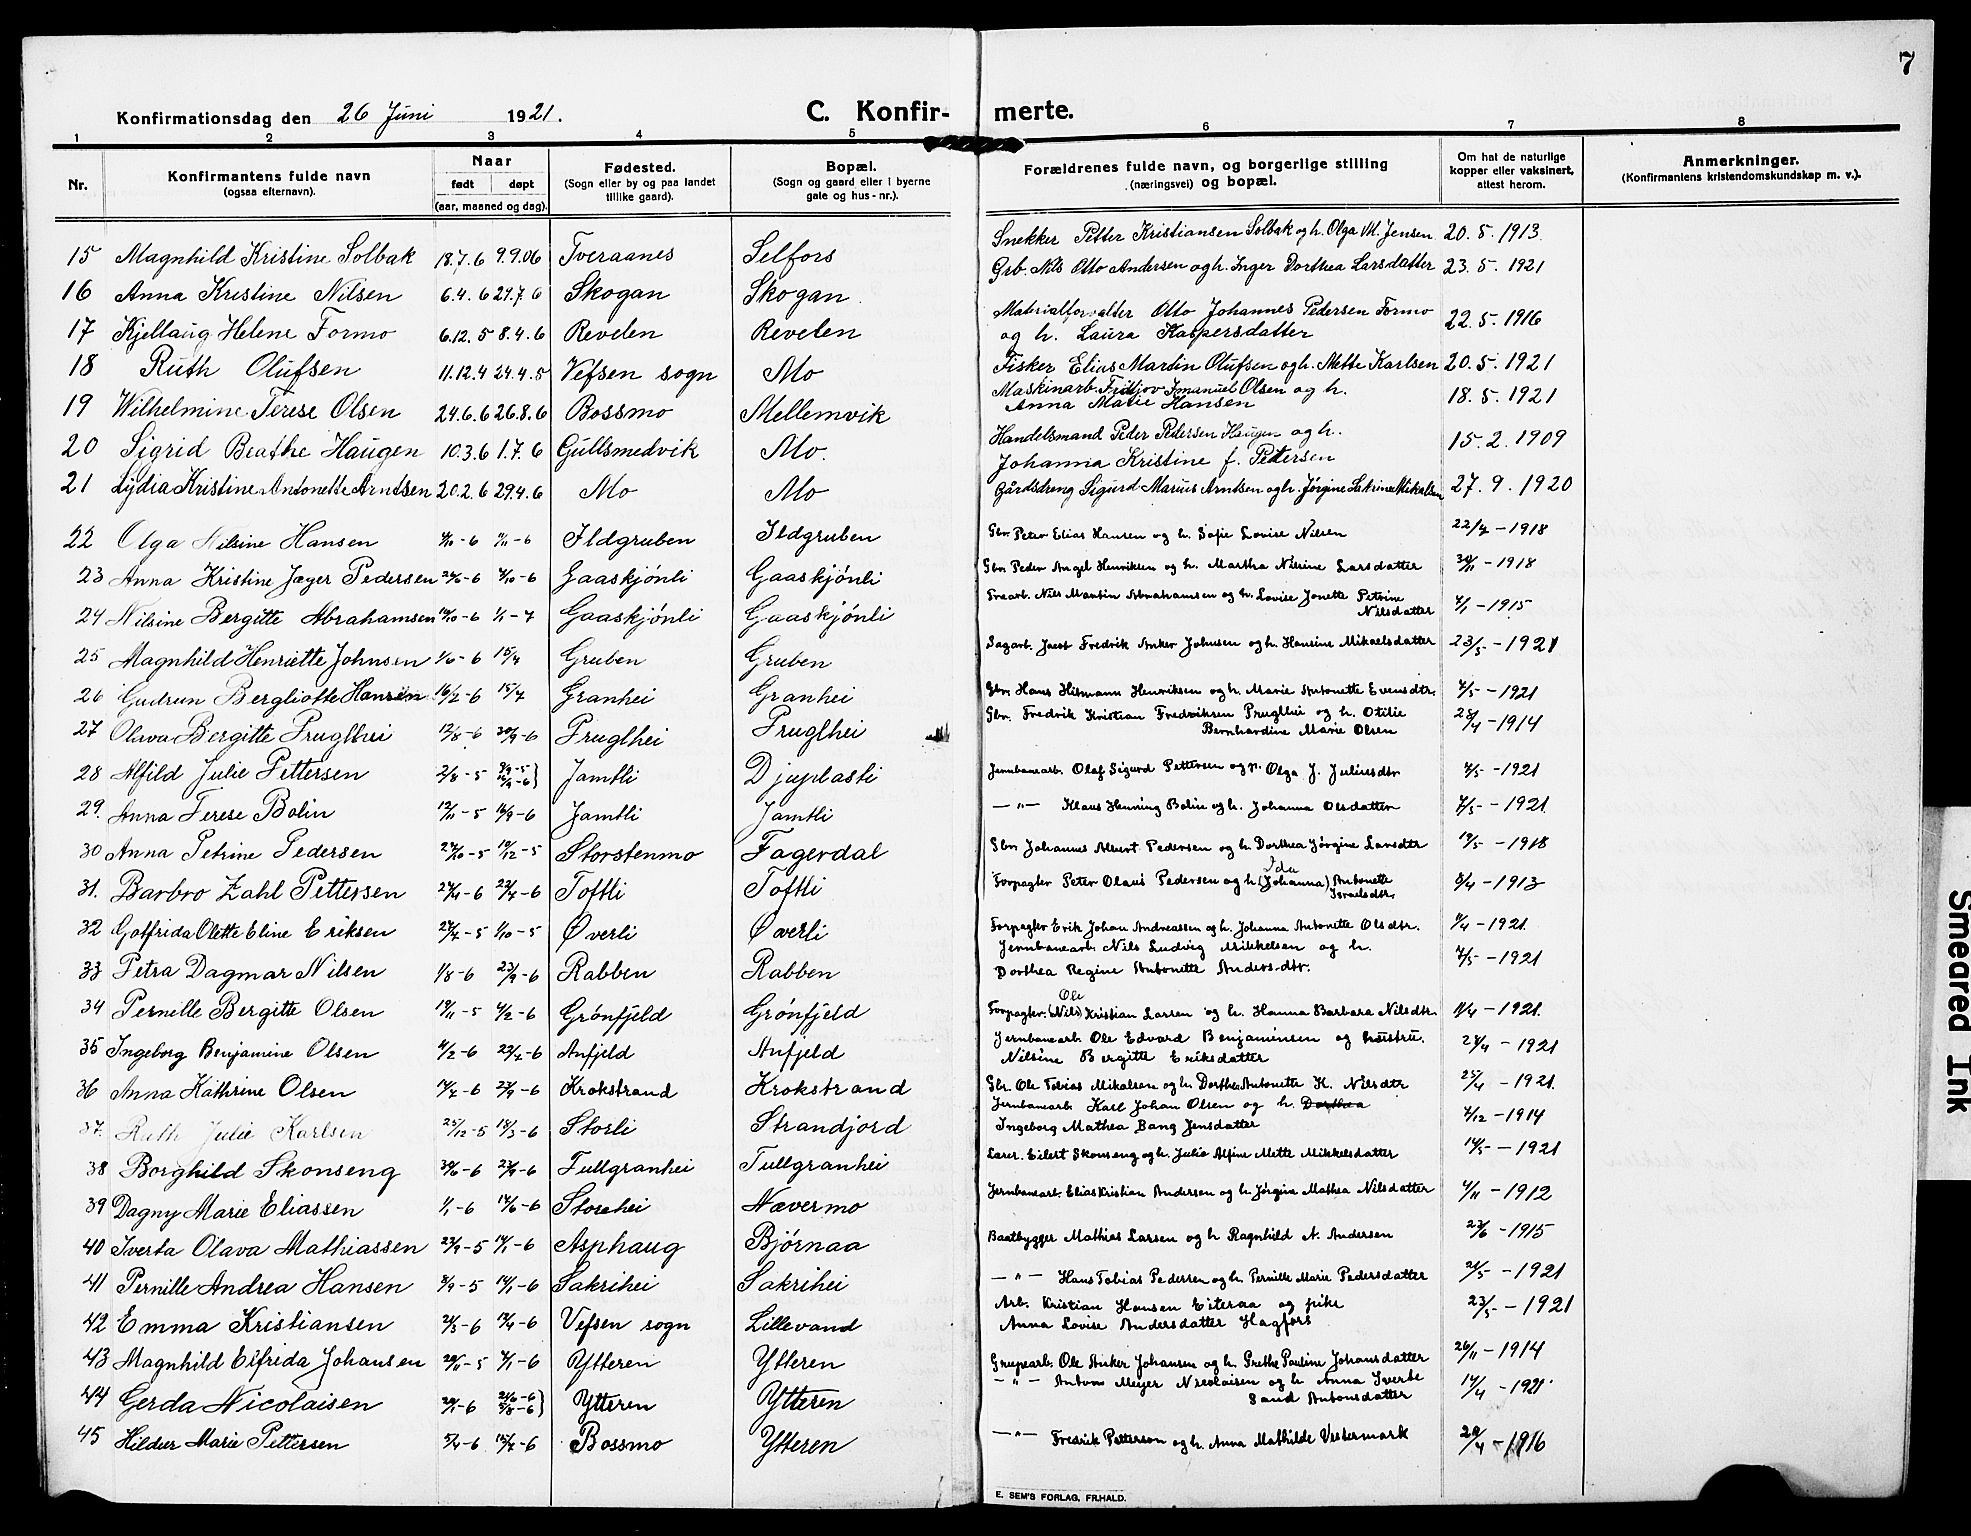 7
Konfirmationsdag den 26 Juni 1921.
C. Konfir- merte.
1 2 3 4 5 6 7 8
Nr. Konfirmantens fulde navn (ogsaa efternavn). Naar født døpt (aar, maaned og dag). Fødested. (Sogn eller by og paa landet tillike gaard). Bopæl. (Sogn og gaard eller i byerne gate og hus-nr.). Forældrenes fulde navn, og borgerlige stilling (næringsvei) og bopæl. Om hat de naturlige kopper eller vaksinert, attest herom. Anmerkninger. (Konfirmantens kristendomskundskap m. v.).
15 Magnhild Kristine Solbak 18.7.6 9.9.06 Tveraanes Selfors Snekker Petter Kristiansen Solbak og h. Olga M. Jensen 20.5.1913
16 Anna Kristine Nilsen 6.4.6 29.7.6 Skogan Skogan Grb. Nils Otto Andersen og h. Inger Dorthea Larsdatter 23.5.1921
17 Kjellaug Helene Formo 6.12.5 8.4.6 Revelen Revelen Materialforvalter Otto Johannes Pedersen Formo
og h. Laura Kaspersdatter 22.5.1916
18 Ruth Olufsen 11.12.4 24.4.5 Vefsen sogn Mo Fisker Elius Martin Olufsen og h. Mette Karlsen 20.5.1921
19 Wilhelmine Terese Olsen 24.6.6 26.8.6 Bossmo Mellemvik Maskinarb. Fridtjov Imanuel Olsen og h.
Anna Marie Hansen 18.5.1921
20 Sigrid Beathe Haugen 10.3.6 1.7.6 Gullsmedvik Mo. Handelsmand Peder Pedersen Haugen og h.
Johanna Kristine f. Pettersen 15.2.1909
21 Lydia Kristine Antonette Arntsen 20.2.6 29.4.6 Mo Mo Gårdsdreng Sigurd Marius Arntsen og h. Jørgine Katrine Mikalsen 27.9.1920
22 Olga Nilsine Hansen Ildgruben Ildgruben Gbr. Peter Elias Hansen og h. Sofie Lovise Nilsen 22/4-1918
23 Anna Kristine Jæger Pedersen Gaaskjønli Gaaskjønli Gbr. Peder Angel Henriksen og h. Martha Nilsine Larsdatter 30/11-1918
24 Nilsine Bergitte Abrahamsen 1/1-7 Gaaskjønli Gaaskjønli Nils Martin Abrahamsen og h. Lovise Jonette Petrine
Nilsdatter -1915
25 Magnhild Henriette Johnsen Gruben Gruben Dagarb. Jacob Fredrik Anker Johnsen og h. Hansine Mikaelsdatter 23/5-1921
26 Gudrun Bergliotte Hansen 16/2-6 15/7 Granhei Granhei Gbr. Hans Hilmann Henriksen og h. Marie Antonette Evensdtr. 7/5-1921
27 Olava Bergitte Pruglhei Pruglhei Pruglhei Gbr. Fredrik Kristian Fredriksen Pruglhei og h. Otilie
Bernhardine Marie Olsen 28/4-1914
28 Alfild Julie Pettersen 2/8-5 Jamtli Djuplasti Jernbanearb. Olaf Sigurd Pettersen og h. Olga J. Juliusdtr -1921
29. Anna Terese Bolin Jamtli Jamtli — " — Klaus Henning Bolin og h. Johanna Olsdatter 7/5-1921.
30 Anna Petrine Pedersen Storstenmo Fagerdal Gbr Johannes Albert Pedersen og h. Dorthea Jørgine Larsdtr 19/5-1918
31. Barbro Zahl Pettersen Toftli Toftli Forpagter Peter Olaus Pedersen og h. (Johanna) Ida Antonette
Israelsdtr. 8/4-1913
32 Gotfrida Olette Eline Eriksen Øverli Øverli Forpagter Erik Johan Andreassen og h. Johanna Antonette Olsdtr. -1921.
33 Petra Dagmar Nilsen 1/8-6 23/9-6 Rabben Rabben Jernbanearb. Nils Ludvig Mikkelsen og h.
Dorthea Regine Antonette Andersdtr. 7/5-1921
34 Pernelle Bergitte Olsen Grønfjeld Grønfjeld Forpagter. (Nils) Ole Kristian Larsen og h. Hanna Barbara Nilsdtr. -1921.
35 Ingeborg Benjamine Olsen Anfjeld Anfjeld Jernbanearb. Ole Edvard Benjaminsen og hustru.
Nilsine Bergitte Eriksdatter -1921
36 Anna Kathrine Olsen Krokstrand Krokstrand Gbr. Ole Tobias Mikalsen og h. Dorthea Antonette K. Nilsdtr 25/4-1921.
37. Ruth Julie Karlsen 25/12-5 18/3-6 Storli Strandjord Jernbanearb. Karl Johan Olsen og h. Dorthea
Ingeborg Mathea Bang Jensdatter 7/12-1914
38 Borghild Skonseng Tullgranhei Tullgranhei Lærer. Eilert Skonseng og h. Julie Alfine Mette Mikkelsdatter 14/5-1921
39 Dagny Marie Eliassen 1/1-6 Storehei Nævermo Jernbanearb. Elias Kristian Andersen og h. Jørgine Mathea Nilsdatter -1912
40 Iverta Olava Mathiassen Asphaug Bjørnaa Baatbygger Mathias Larsen og h Ragnhild N. Andersen -1915
41 Pernille Andrea Hansen Sakrihei Sakrihei — " — Hans Tobias Pedersen og h. Pernille Marie Pedersdatter -1921
42 Emma Kristiansen Vefsen sogn Lillevand Arb. Kristian Hansen Eiteraa og pike
Anna Lovise Andersdatter Hagfors 23/5-1921
43 Magnhild Elfrida Johansen Ytteren Ytteren Grupearb. Ole Anker Johansen og h. Grethe Pauline Johansdatter 26/11-1914
44 Gerda Nicolaisen Ytteren Ytteren — " — Anton Meyer Nicolaisen og h Anna Iverte
Sand Antonsdatter 14/4-1921
45 Hildur Marie Pettersen 5/4-6 15/7-6 Bossmo Ytteren — " — Fredrik Petterson og h. Anna Mathilde Vestermark 29/4-1916
E. SEM'S FORLAG, FR.HALD.
Smeared Ink